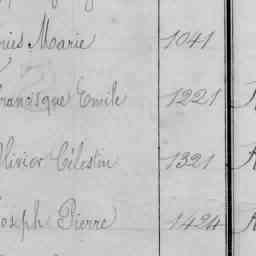 Marie 1041
Francisque Emile 1221
Olivier Célestin 1321
Joseph Pierre 1424